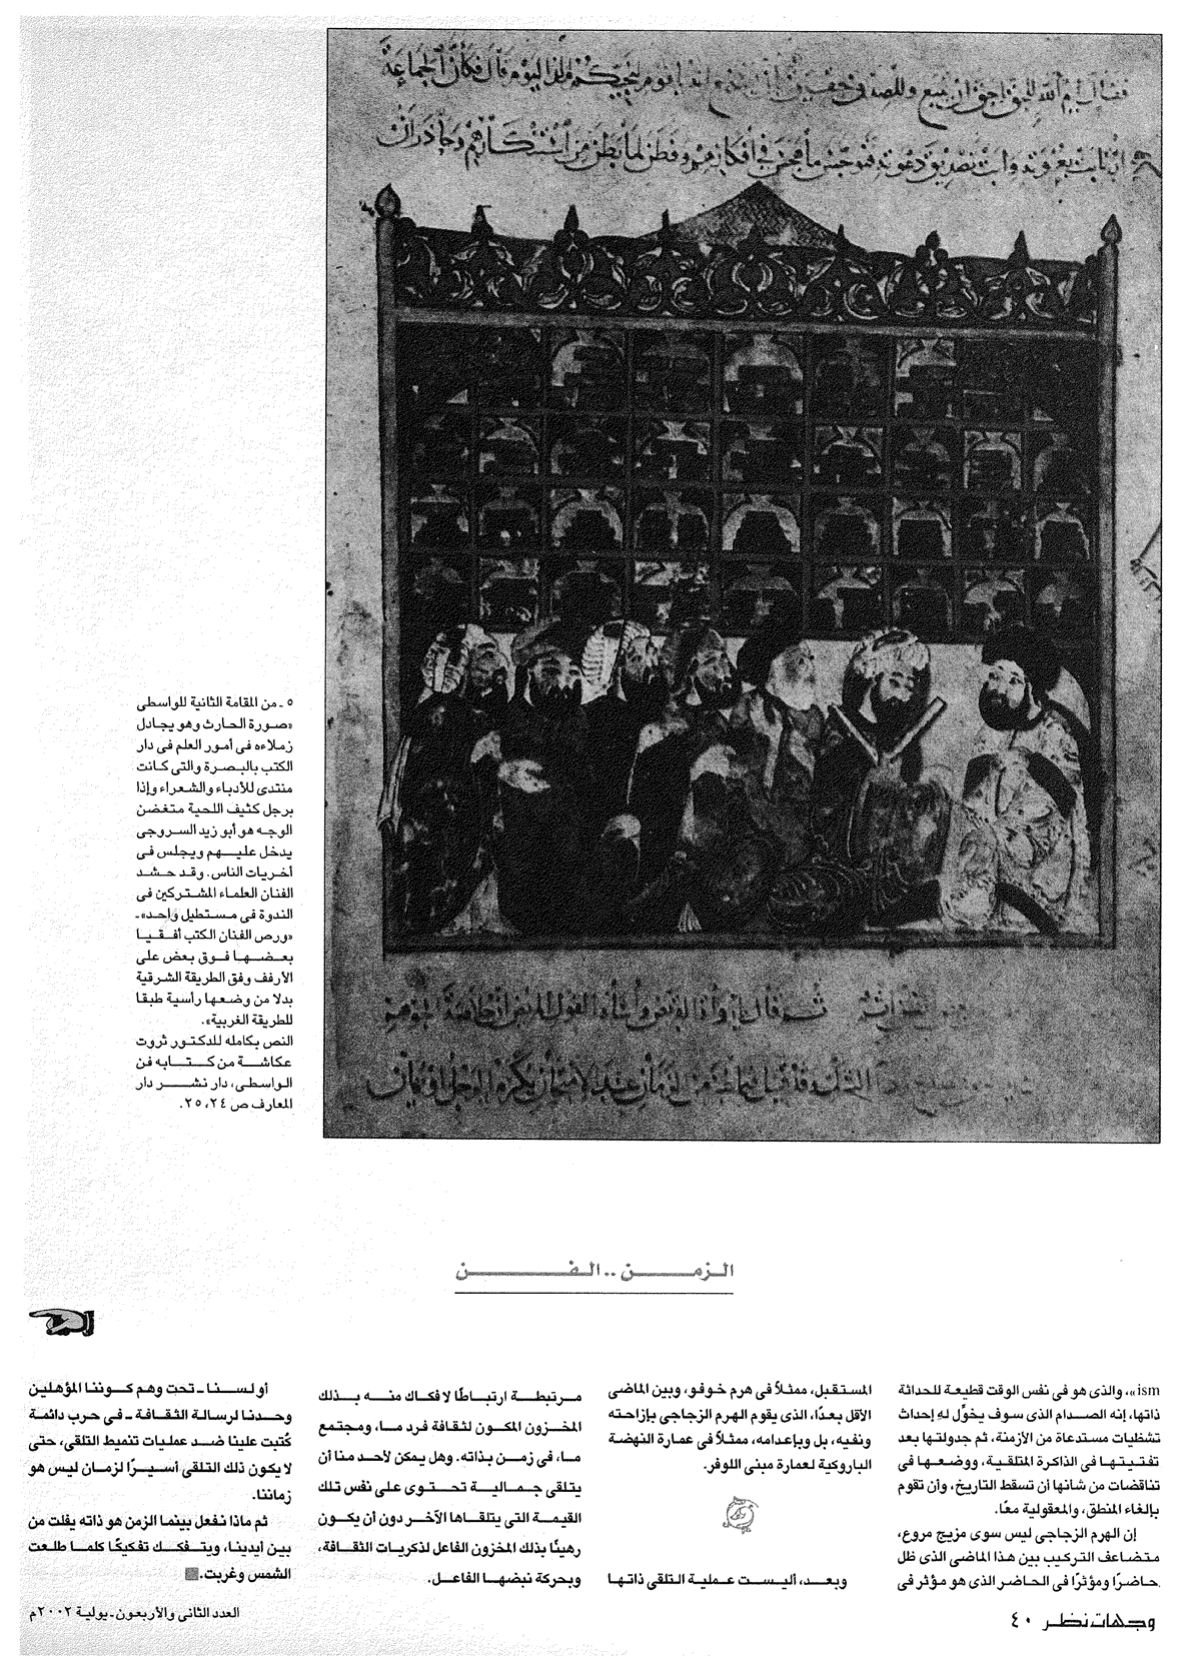 فقال أيم الله للحق أحق أن يتبع وللصدق حقيق أن يستمع إنه يا قوم لنجيكم مذ اليوم قال فكأن الجماعة
ارتابت بعزوته وأبت تصديق دعوته فتوجس ما هجس في أفكارهم وفطن لما بطن من استنكارهم وحاذر أن
ثم قال
٥ ـ من المقامة الثانية للواسطى
«صورة الحارث وهو يجادل
زملاءه فى أمور العلم فى دار
الكتب بالبصرة والتى كانت
منتدى للأدباء والشعراء وإذا
برجل كثيف اللحية متغضن
الوجه هو أبو زيد السروجى
يدخل عليهم ويجلس فى
أخريات الناس. وقد حشد
الفنان العلماء المشتركين فى
الندوة فى مستطيل واحد».
«ورص الفنان الكتب أفقيا
بعضها فوق بعض على
الأرفف وفق الطريقة الشرقية
بدلا من وضعها رأسية طبقا
للطريقة الغربية».
النص بكامله للدكتور ثروت
عكاشة من كتابه فن
الواسطى، دار نشر دار
المعارف ص ٢٤، ٢٥.
الزمن .. الفن
ism»، والذى هو فى نفس الوقت قطيعة للحداثة
ذاتها، إنه الصدام الذى سوف يخوِّل له إحداث
تشظيات مستدعاة من الأزمنة، ثم جدولتها بعد
تفتيتها فى الذاكرة المتلقية، ووضعها فى
تناقضات من شانها أن تسقط التاريخ، وأن تقوم
بإلغاء المنطق، والمعقولية معًا.
إن الهرم الزجاجى ليس سوى مزيج مروع،
متضاعف التركيب بين هذا الماضى الذى ظل
حاضرًا ومؤثرًا فى الحاضر الذى هو مؤثر فى
المستقبل، ممثلاً فى هرم خوفو، وبين الماضى
الأقل بعدًا، الذى يقوم الهرم الزجاجى بإزاحته
ونفيه، بل وبإعدامه، ممثلاً فى عمارة النهضة
الباروكية لعمارة مبنى اللوفر.
وبعد، أليست عملية التلقى ذاتها
مرتبطة ارتباطًا لا فكاك منه بذلك
المخزون المكون لثقافة فرد ما، ومجتمع
ما، فى زمن بذاته. وهل يمكن لأحد منا أن
يتلقى جمالية تحتوى على نفس تلك
القيمة التى يتلقاها الآخر دون أن يكون
رهينًا بذلك المخزون الفاعل لذكريات الثقافة،
وبحركة نبضها الفاعل.
أو لسنا ـ تحت وهم كوننا المؤهلين
وحدنا لرسالة الثقافة ـ فى حرب دائمة
كُتبت علينا ضد عمليات تنميط التلقى، حتى
لا يكون ذلك التلقى أسيرًا لزمان ليس هو
زماننا.
ثم ماذا نفعل بينما الزمن هو ذاته يفلت من
بين أيدينا، ويتفكك تفكيكًا كلما طلعت
الشمس وغربت.
وجهات نظر ٤٠
العدد الثانى والأربعون ـ يولية ٢٠٠٢م